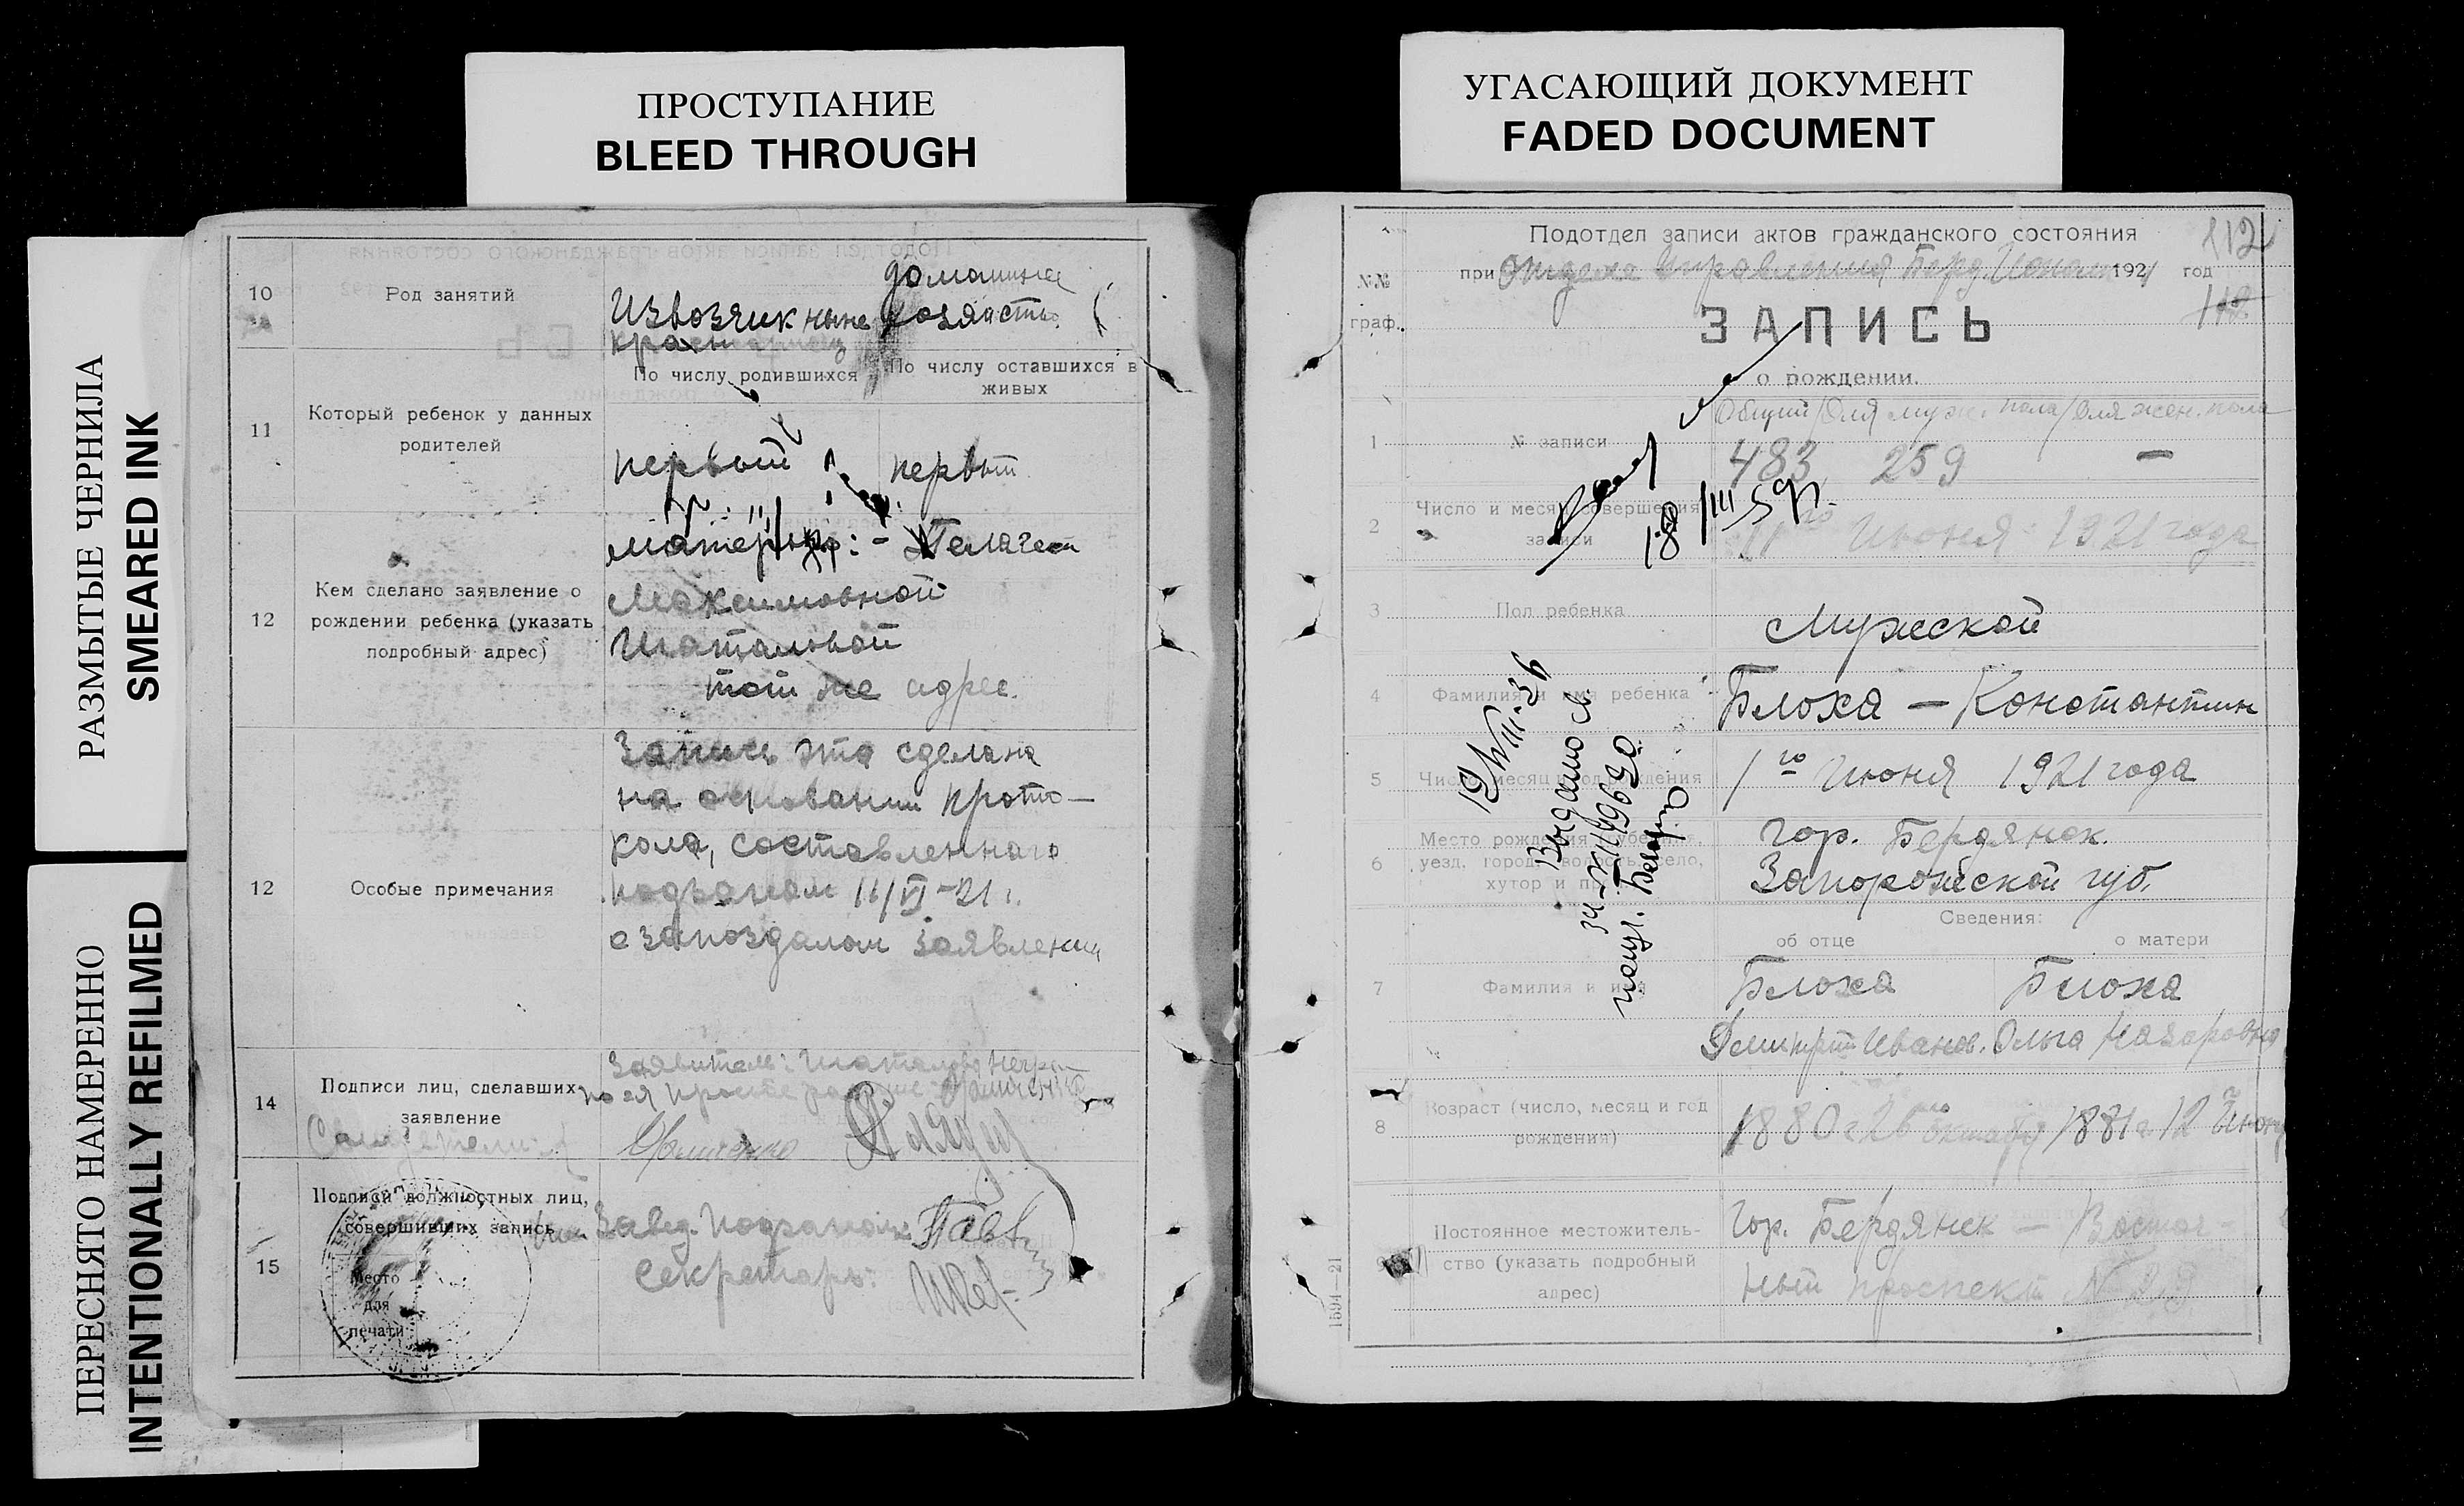 ПРОСТУПАНИЕ
BLEED THROUGH
УГАСАЮЩИЙ ДОКУМЕНТ
FADED DOCUMENT
РАЗМЫТЫЕ ЧЕРНИЛА
SMEARED INK
ПЕРЕСНЯТО НАМЕРЕННО
INTENTIONALLY REFILMED
10
Род занятий
Извозчик ныне
домашнее
хозяйство
11
Который ребенок у данных
родителей
По числу родившихся
По числу оставшихся в
живых
первый
первый
12
Кем сделано заявление о
рождении ребенка (указать
подробный адрес)
Максимовной
Шаталовой
тот же адрес.
12
Особые примечания
Запись эта сделана
на основании прото-
кола, составленного
подзагсом 11/VI-21 г.
о запоздалом заявлении
14
Подписи лиц, сделавших
заявление
Заявитель: Шаталова
15
Подписи должностных лиц,
совершивших запись
Место
для
печати
Завед. Подзагсом
Секретарь:
Подотдел записи актов гражданского состояния
112
№№
граф.
при Отделе Управления Берд. 1921 год
112
ЗАПИСЬ
о рождении.
1
№ записи
Общий / Для муж. пола / Для жен. пола
483 259 —
2
Число и месяц совершения
записи
11го Июня 1921 года
18/III 59
3
Пол ребенка
Мужской
4
Фамилия и имя ребенка
Блоха — Константин
5
Число, месяц и год рождения
1го Июня 1921 года
6
Место рождения
уезд, город, волость, село,
хутор и пр.
Гор. Бердянск.
Запорожской губ.
19/VIII-36
Выдано св.
Сведения:
об отце
о матери
7
Фамилия и имя
Блоха
Блоха
Дмитрий Иванов.
Ольга Назаровна
8
Возраст (число, месяц и год
рождения)
1880 г. 26го октября
1881 г. 12 Июня
9
Постоянное местожитель-
ство (указать подробный
адрес)
Гор. Бердянск — Восточ-
ный проспект № 29
1594—21